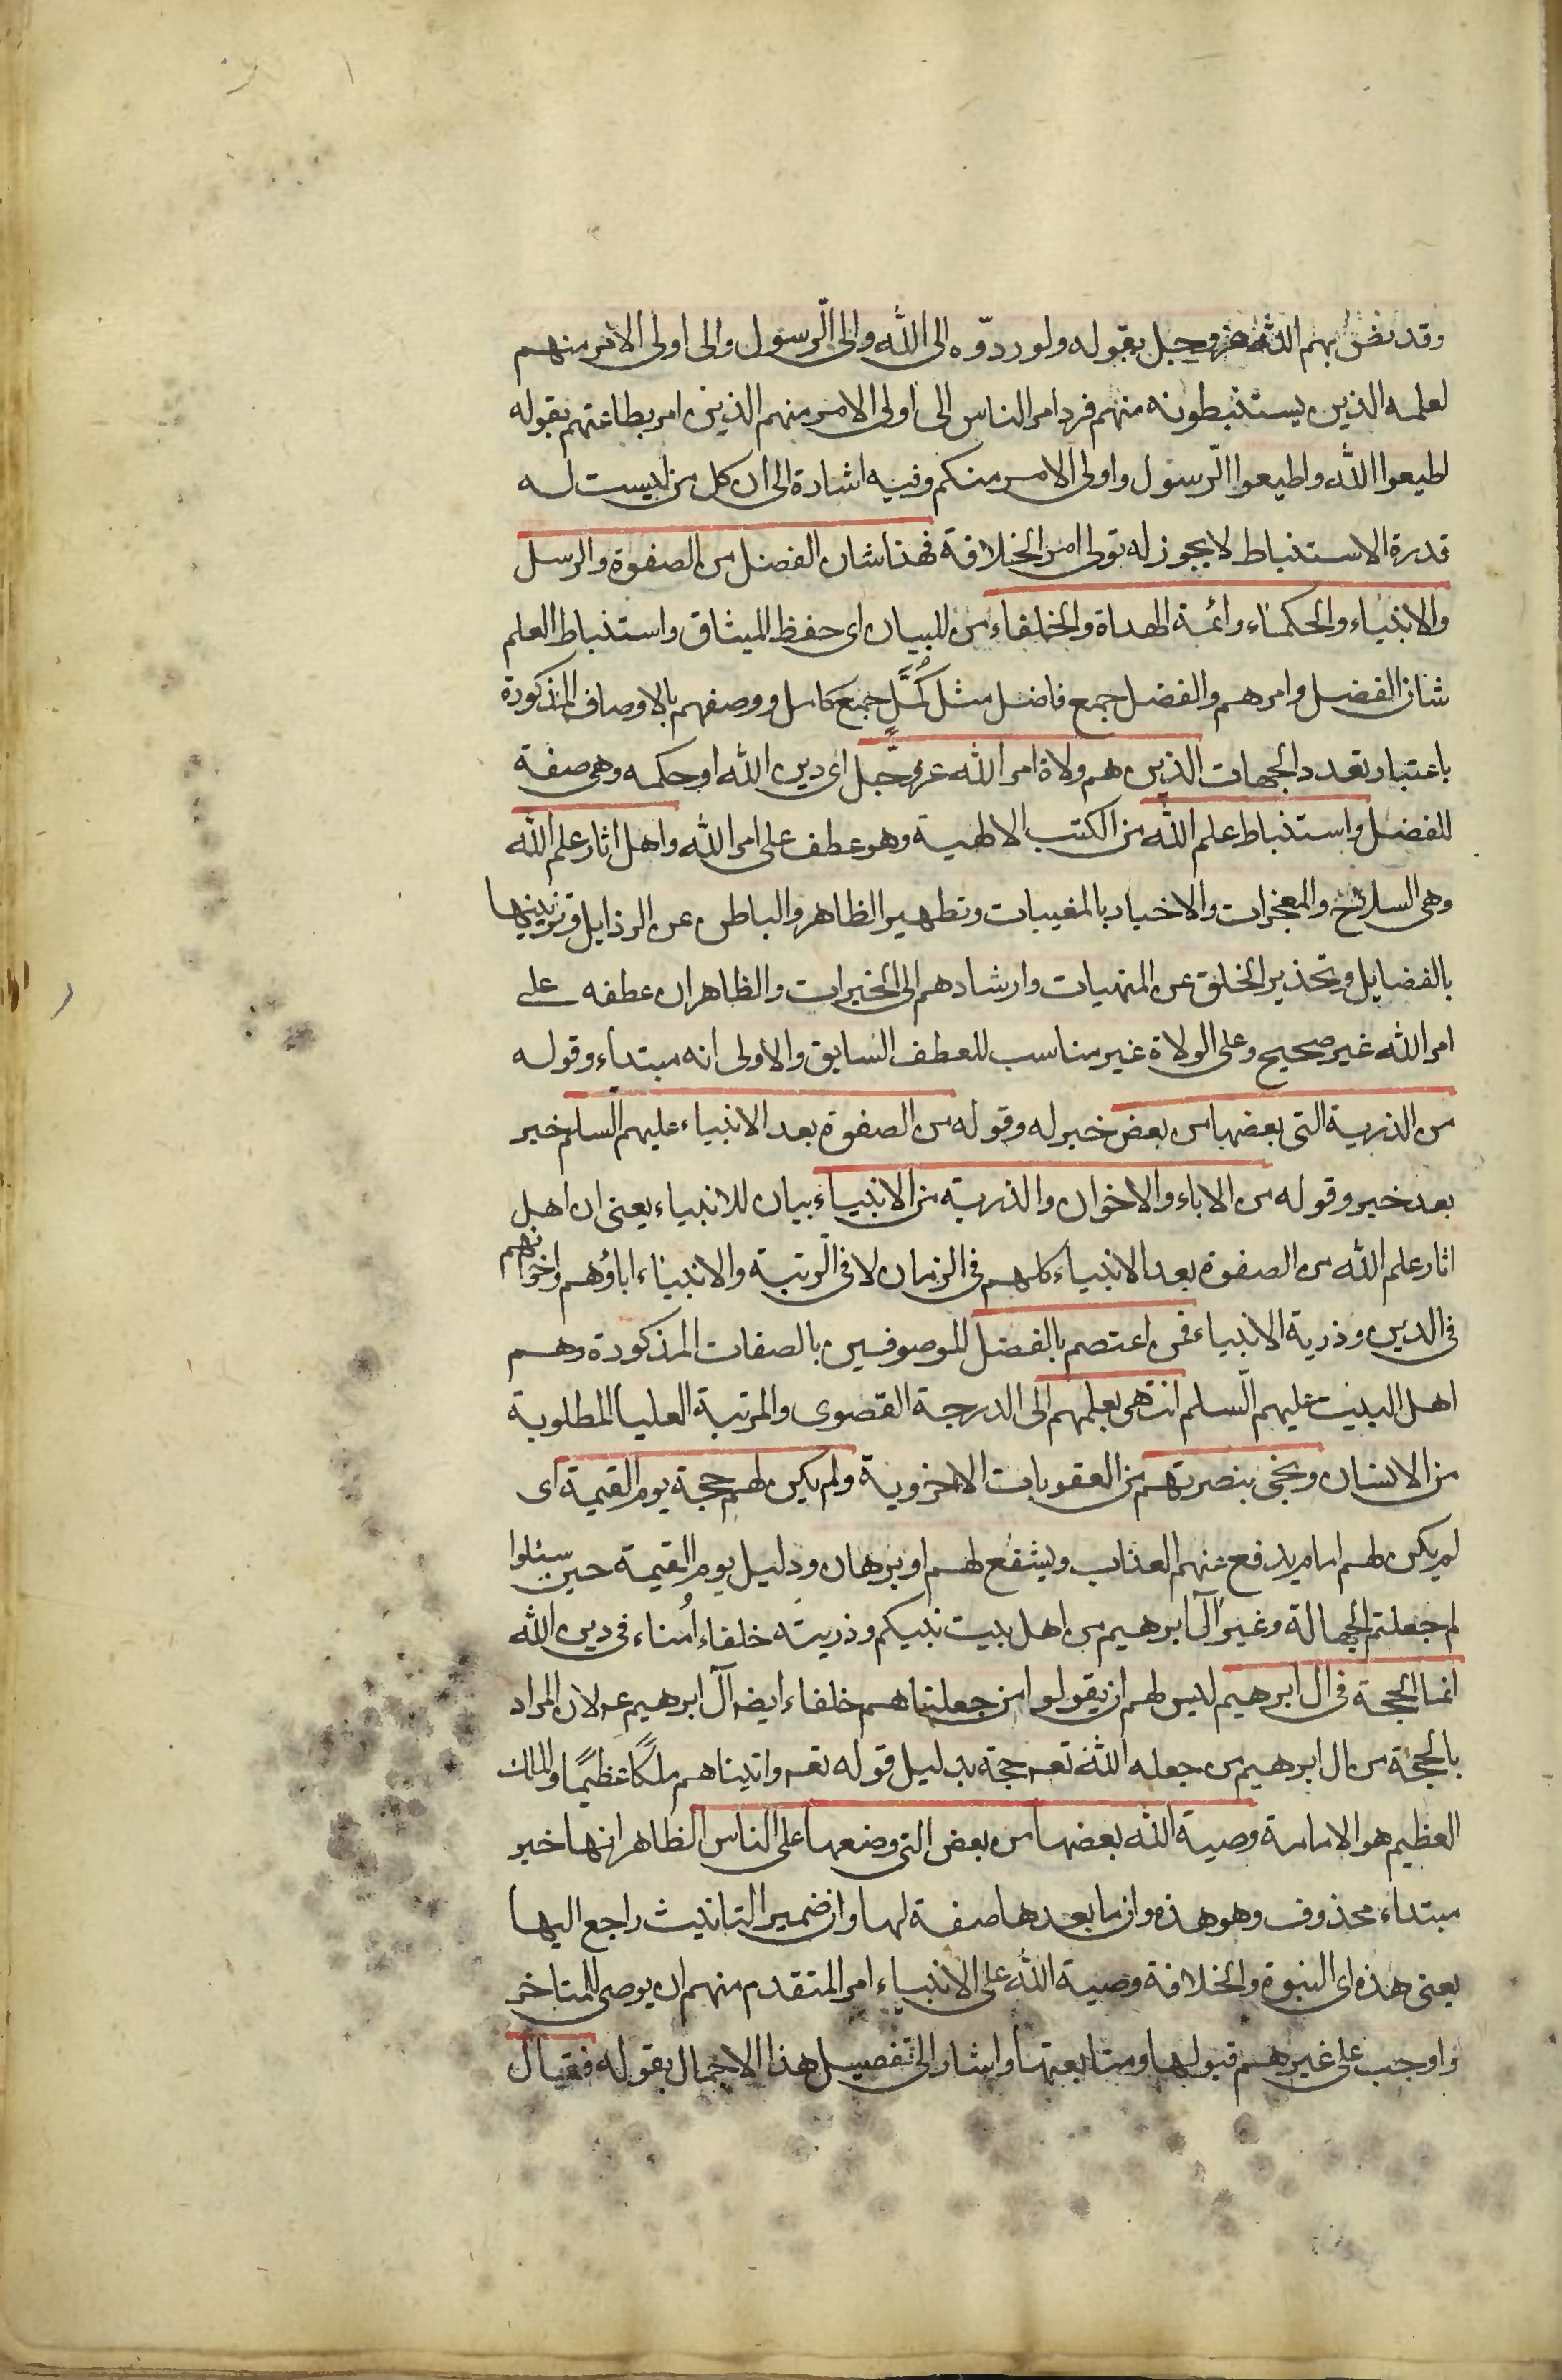 وقد نص بهم الله عز وجل بقوله ولو ردّوه الى الله والى الرّسول والى اولى الامر منهم
لعلمه الذين يستنبطونه منهم فرد امر الناس الى اولى الامر منهم الذين امر بطاعتهم بقوله
اطيعوا الله واطيعوا الرّسول واولى الامر منكم وفيه اشارة الى ان كل من ليست له
قدرة الاستنباط لا يجوز له تولى امر الخلافة فهذا شان الفضل من الصفوة والرسل
والانبياء والحكماء وائمة الهداة والخلفاء من للبيان اى حفظ الميثاق واستنباط العلم
شان الفضل وامرهم والفضل جمع فاضل مثل كُمَّلٍ جمع كامل ووصفهم بالاوصاف المذكورة
باعتبار تعدد الجهات الذين هم ولاة امر الله عز وجَّل اى دين الله او حكمه وهى صفة
للفضل واستنباط علم الله من الكتب الالهية وهو عطف على امر الله واهل اثار علم الله
وهى الشرائع والمعجزات والاخبار بالمغيبات وتطهير الظاهر والباطن عن الرذايل وتزيينها
بالفضايل وتحذير الخلق عن المنهيات وارشادهم الى الخيرات والظاهر ان عطفه على
امر الله غير صحيح وعلى الولاة غير مناسب للعطف السابق والاولى انه مبتداء وقوله
من الذرية التى بعضها من بعض خبر له وقوله من الصفوة بعد الانبياء عليهم السّلم خبر
بعد خبر وقوله من الاباء والاخوان والذرية من الانبياء بيان للانبياء يعنى ان اهل
اثار علم الله من الصفوة بعد الانبياء كلهم فى الزمان لا فى الرّتبة والانبياء اباؤهم واخوانهم
فى الدين وذرية الانبياء فمن اعتصم بالفضل الموصوفين بالصفات المذكورة وهم
اهل البيت عليهم السّلم انتهى بعلمهم الى الدرجة القصوى والمرتبة العليا المطلوبة
من الانسان ونجى بنصرتهم من العقوبات الاخروية ولم يكن لهم حجة يوم القيمة اى
لم يكن لهم امام يدفع عنهم العذاب ويشفع لهم او برهان ودليل يوم القيمة حين سئلوا
لم جعلتم الجهالة وغير آل ابرهيم من اهل بيت نبيكم وذريته خلفاء اُمناء فى دين الله
انما الحجة فى ال ابرهيم ليس لهم ان يقولوا من جعلناهم خلفاء ايضه آل ابرهيم عه لان المراد
بالحجة من ال ابرهيم من جعله الله تعه حجة بدليل قوله تعه واتيناهم ملكًا عظيمًا والملك
العظيم هو الامامة وصية الله بعضها من بعض التى وضعها على الناس الظاهر انها خبر
مبتداء محذوف وهو هذه وان ما بعدها صفة لها وان ضمير التانيث راجع اليها
يعنى هذه اى النبوة والخلافة وصية الله على الانبياء امر المتقدم منهم ان يوصى للمتاخر
واوجب على غيرهم قبولها ومتابعتها واشار الى تفصيل هذا الاجمال بقوله فقال